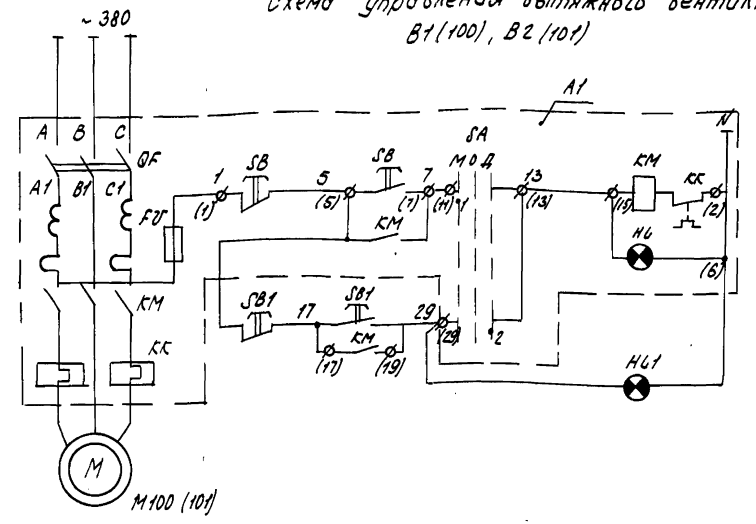 Схема управления вытяжного вентил
В1(100), В2(101)
~ 380
А1
A B C
N
QF
A1 B1 C1
FU
1
(1)
SB
5
(5)
SB
7
(7)
(11)
SA
М О Д
1
13
(13)
КМ
КК
(15)
(2)
КМ
HL
(6)
КМ
SB1
17
SB1
29
(29)
2
КМ
(17)
(19)
КК
HL1
М
М100 (101)